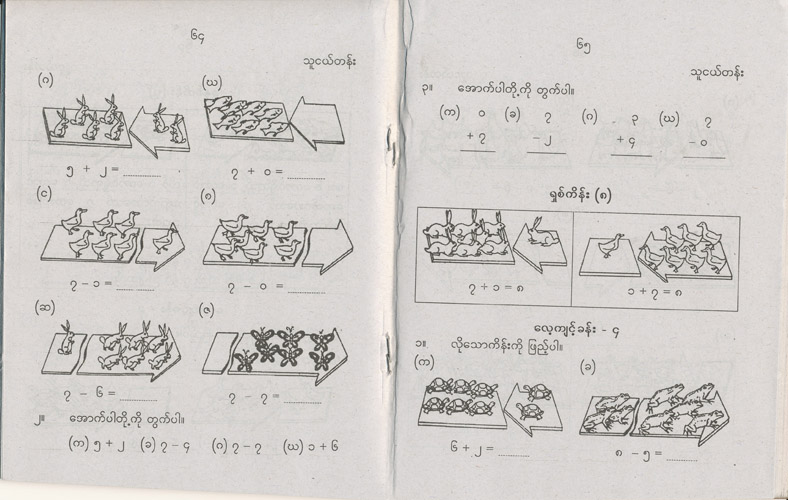 ၆၄
သူငယ်တန်း
(ဂ) (ဃ)
၅ + ၂ = ............ ၇ + ၀ = ............
(င) (စ)
၇ – ၁ = ............ ၇ – ၀ = ............
(ဆ) (ဇ)
၇ – ၆ = ............ ၇ – ၇ = ............
၂။ အောက်ပါတို့ကို တွက်ပါ။
(က) ၅ + ၂ (ခ) ၇ – ၄ (ဂ) ၇ – ၇ (ဃ) ၁ + ၆
၆၅
သူငယ်တန်း
၃။ အောက်ပါတို့ကို တွက်ပါ။
(က) ၀ (ခ) ၇ (ဂ) ၃ (ဃ) ၇
+ ၇ – ၂ + ၄ – ၀
ရှစ်ကိန်း (၈)
၇ + ၁ = ၈ ၁ + ၇ = ၈
လေ့ကျင့်ခန်း - ၄
၁။ လိုသောကိန်းကို ဖြည့်ပါ။
(က) (ခ)
၆ + ၂ = ............ ၈ – ၅ = ............